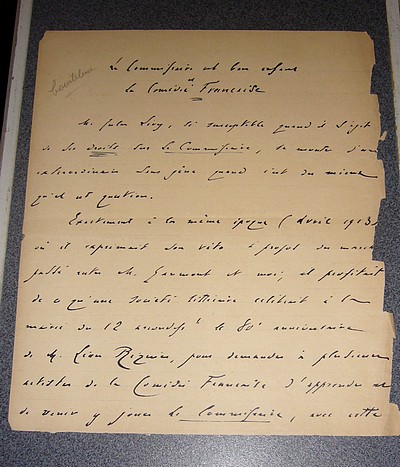 Courteline
Le Commissaire est bon enfant
et
la Comédie Française
M. Jules Lévy, si susceptible quand il s'agit
de ses droits sur Le Commissaire, se montre d'un
extraordinaire sans gêne quand c'est du mien
qu'il est question.
Exactement à la même époque (Avril 1913)
où il exprimait son véto à propos du marché
passé entre M. Gaumont et moi, il profitait
de ce qu'une société littéraire célébrait à la
mairie du 12 arrondisst le 80e anniversaire
de M. Léon, pour demander à plusieurs
artistes de la Comédie Française d'apprendre et
de venir y jouer le Commissaire, avec cette